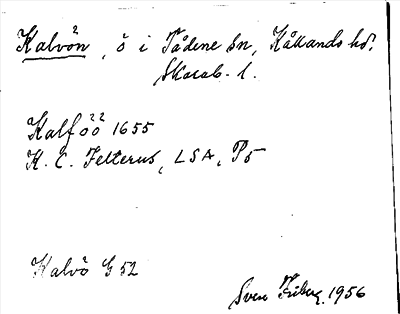 Kalvön, ö i Tådene sn, Kållands hd.
Skarab. l.
Kalföö 1655
K. C. Felterus, LSA, P5
Kalvö G 52
Sven Friberg 1956